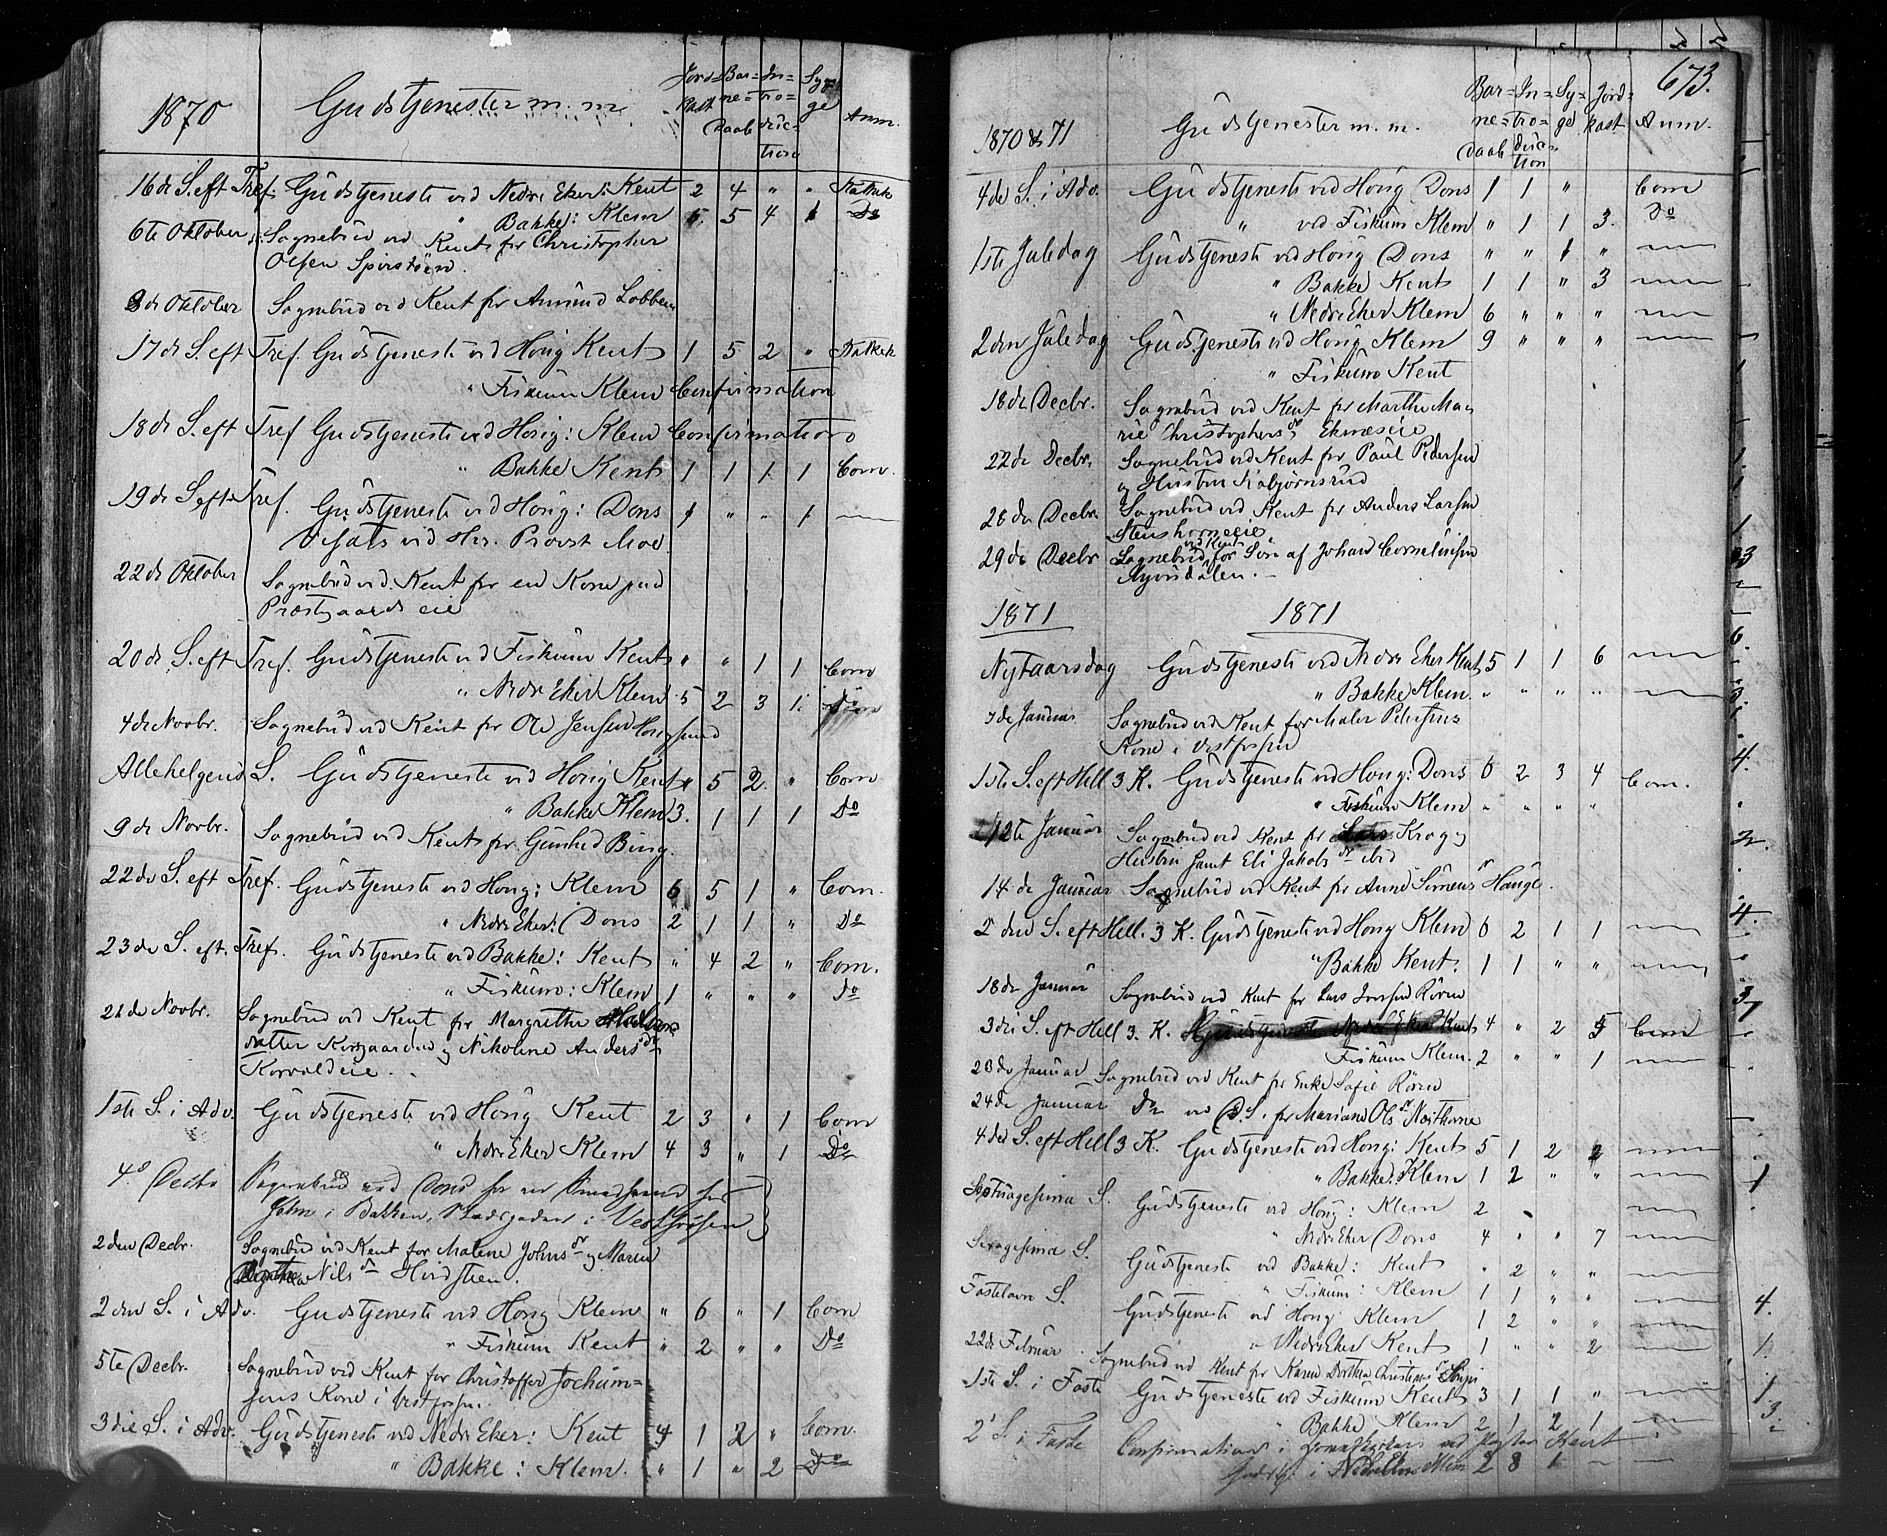 1870
Gudstjenester m. m.
Jord=kast
Bar=ne=daab
In=tro=duc=tion
Syge
Anm.
16de S. eft Tref. Gudstjeneste ved Nedre Eker: Kent 2 4 " "
" Bakke: Klem 5 4 1 Do
6te Oktober Sognebud ved Kent for Christopher
Olsen
8de Oktober Sognebud ved Kent for Amund Lobben
17de S. eft Tref. Gudstjeneste ved Houg Kent 1 5 2 "
" Fiskum Klem Confirmation
18de S. eft Tref Gudstjeneste ved Houg: Klem Confirmation
" Bakke Kent 1 1 1 1 Com.
19de S. eft Tref. Gudstjeneste ved Houg: Dons 1 " " 1
Visats ved Hr. Provst Moe
22de Oktober Sognebud ved Kent for en Kone paa
Præstgaards eie
20de S. eft Tref. Gudstjeneste ved Fiskum Kent " " 1 1 Com
" Nedre Eker Klem 5 2 3 1
4de Novbr. Sognebud ved Kent for Ole Jensen Hougsund
Allehelgens S. Gudstjeneste ved Houg Kent " 5 2 " Com
" Bakke Klem 3. 1 1 1 Do
9de Novbr. Sognebud ved Kent for Gunhild Bing.
22de S. eft Tref. Gudstjeneste ved Houg: Klem 6 5 1 " Com.
" Nedre Eker: Dons 2 1 1 " Do
23de S. eft. Tref. Gudstjeneste ved Bakke: Kent " 4 2 " Com.
" Fiskum: Klem 1 " " " Do
21de Novbr. Sognebud ved Kent for Margrethe
datter og Nikoline Anders dr
Korvaldeie
1ste S. i Adv. Gudstjeneste ved Houg Kent 2 3 " 1 Com
" Nedre Eker Klem 4 3 " 1 Do
4de Decbr Sognebud ved Dons for en
John i Bakken, i Vestfossen
2den Decbr. Sognebud ved Kent for Malene Johns dr og Maren
Nils dr
2den S. i Adv. Gudstjeneste ved Houg Klem " 6 " 1 Com
" Fiskum Kent " 2 " " Do
5te Decbr. Sognebud ved Kent for Christoffer Jochum=
sens Kone i Vestfossen.
3die S. i Adv. Gudstjeneste ved Nedre Eker: Kent 4 1 2 " Com.
" Bakke: Klem. " 1 " 2 Do
673.
1870 & 71
Gudstjenester m. m.
Bar=ne=daab
In=tro=duc=tion
Sy=ge
Jord=kast
Anm.
4de S. i Adv. Gudstjeneste ved Houg Dons 1 1 " Com
" ved Fiskum Klem " 1 1 3. Do
1ste Juledag Gudstjeneste ved Houg Dons " " 1 "
" Bakke Kent 1 1 " 3
" Nedre Eker Klem 6 " " "
2den Juledag Gudstjeneste ved Houg Klem 9 " " "
" Fiskum Kent
18de Decbr. Sognebud ved Kent for Marthe Ma=
rie Christophers dr,
22de Decbr. Sognebud ved Kent for Paul Pedersen
og Hustru
28de Decbr. Sognebud ved Kent for Anders Larsen
29de Decbr Sognebud ved Kent for Søn af Johan Corneliusen
1871 1871
Nytaarsdag Gudstjeneste ved Nedre Eker Kent 5 1 1 6
" Bakke Klem. " " " "
7de Januar Sognebud ved Kent for Maler Petersens
Kone i Vestfossen
1ste S. eft Hell 3 K. Gudstjeneste ved Houg: Dons 6 2 3 4 Com.
" Fiskum Klem " " " "
12te Januar Sognebud ved Kent for Krog og
Hustru samt Eli Jakobs dr ibid
14de Januar Sognebud ved Kent for Anne Simens dr Houge.
2den S. eft Hell. 3 K. Gudstjeneste ved Houg Klem 6 2 1 1
" Bakke Kent. 1 1 " "
18de Januar Sognebud ved Kent for Lars Røren
3die S. eft Hell 3. K. Nedre Eker Kent 4 " 2 5 Com
Fiskum Klem. 2 " " 1
23de Januar Sognebud ved Kent for Enke Sofie Røren
24de Januar Do ved D. S. for Mariane Ols dr
4de S. eft Hell 3 K. Gudstjeneste ved Houg: Kent 5 1 2 2
" Bakke: Klem 1 2 " "
Septuagesima S. Gudstjeneste ved Houg: Klem 2
" Nedre Eker Dons 4 " " 7
Sexagesima S. Gudstjeneste ved Bakke: Kent " 2 " "
" Fiskum: Klem 1 1 " "
Fastelavn S. Gudstjeneste ved Houg Klem 1 2 " "
" Nedre Eker Kent 1 " " 2
22de Februar Sognebud ved Kent for Karen Dorthea Christians dr
1ste S. i Faste Gudstjeneste ved Fiskum Kent 3 1 1 "
" Bakke Klem 2 1 2 1
2 S. i Faste Confirmation i ved Pastor Kent
Gudstj. i Klem 2 8 1